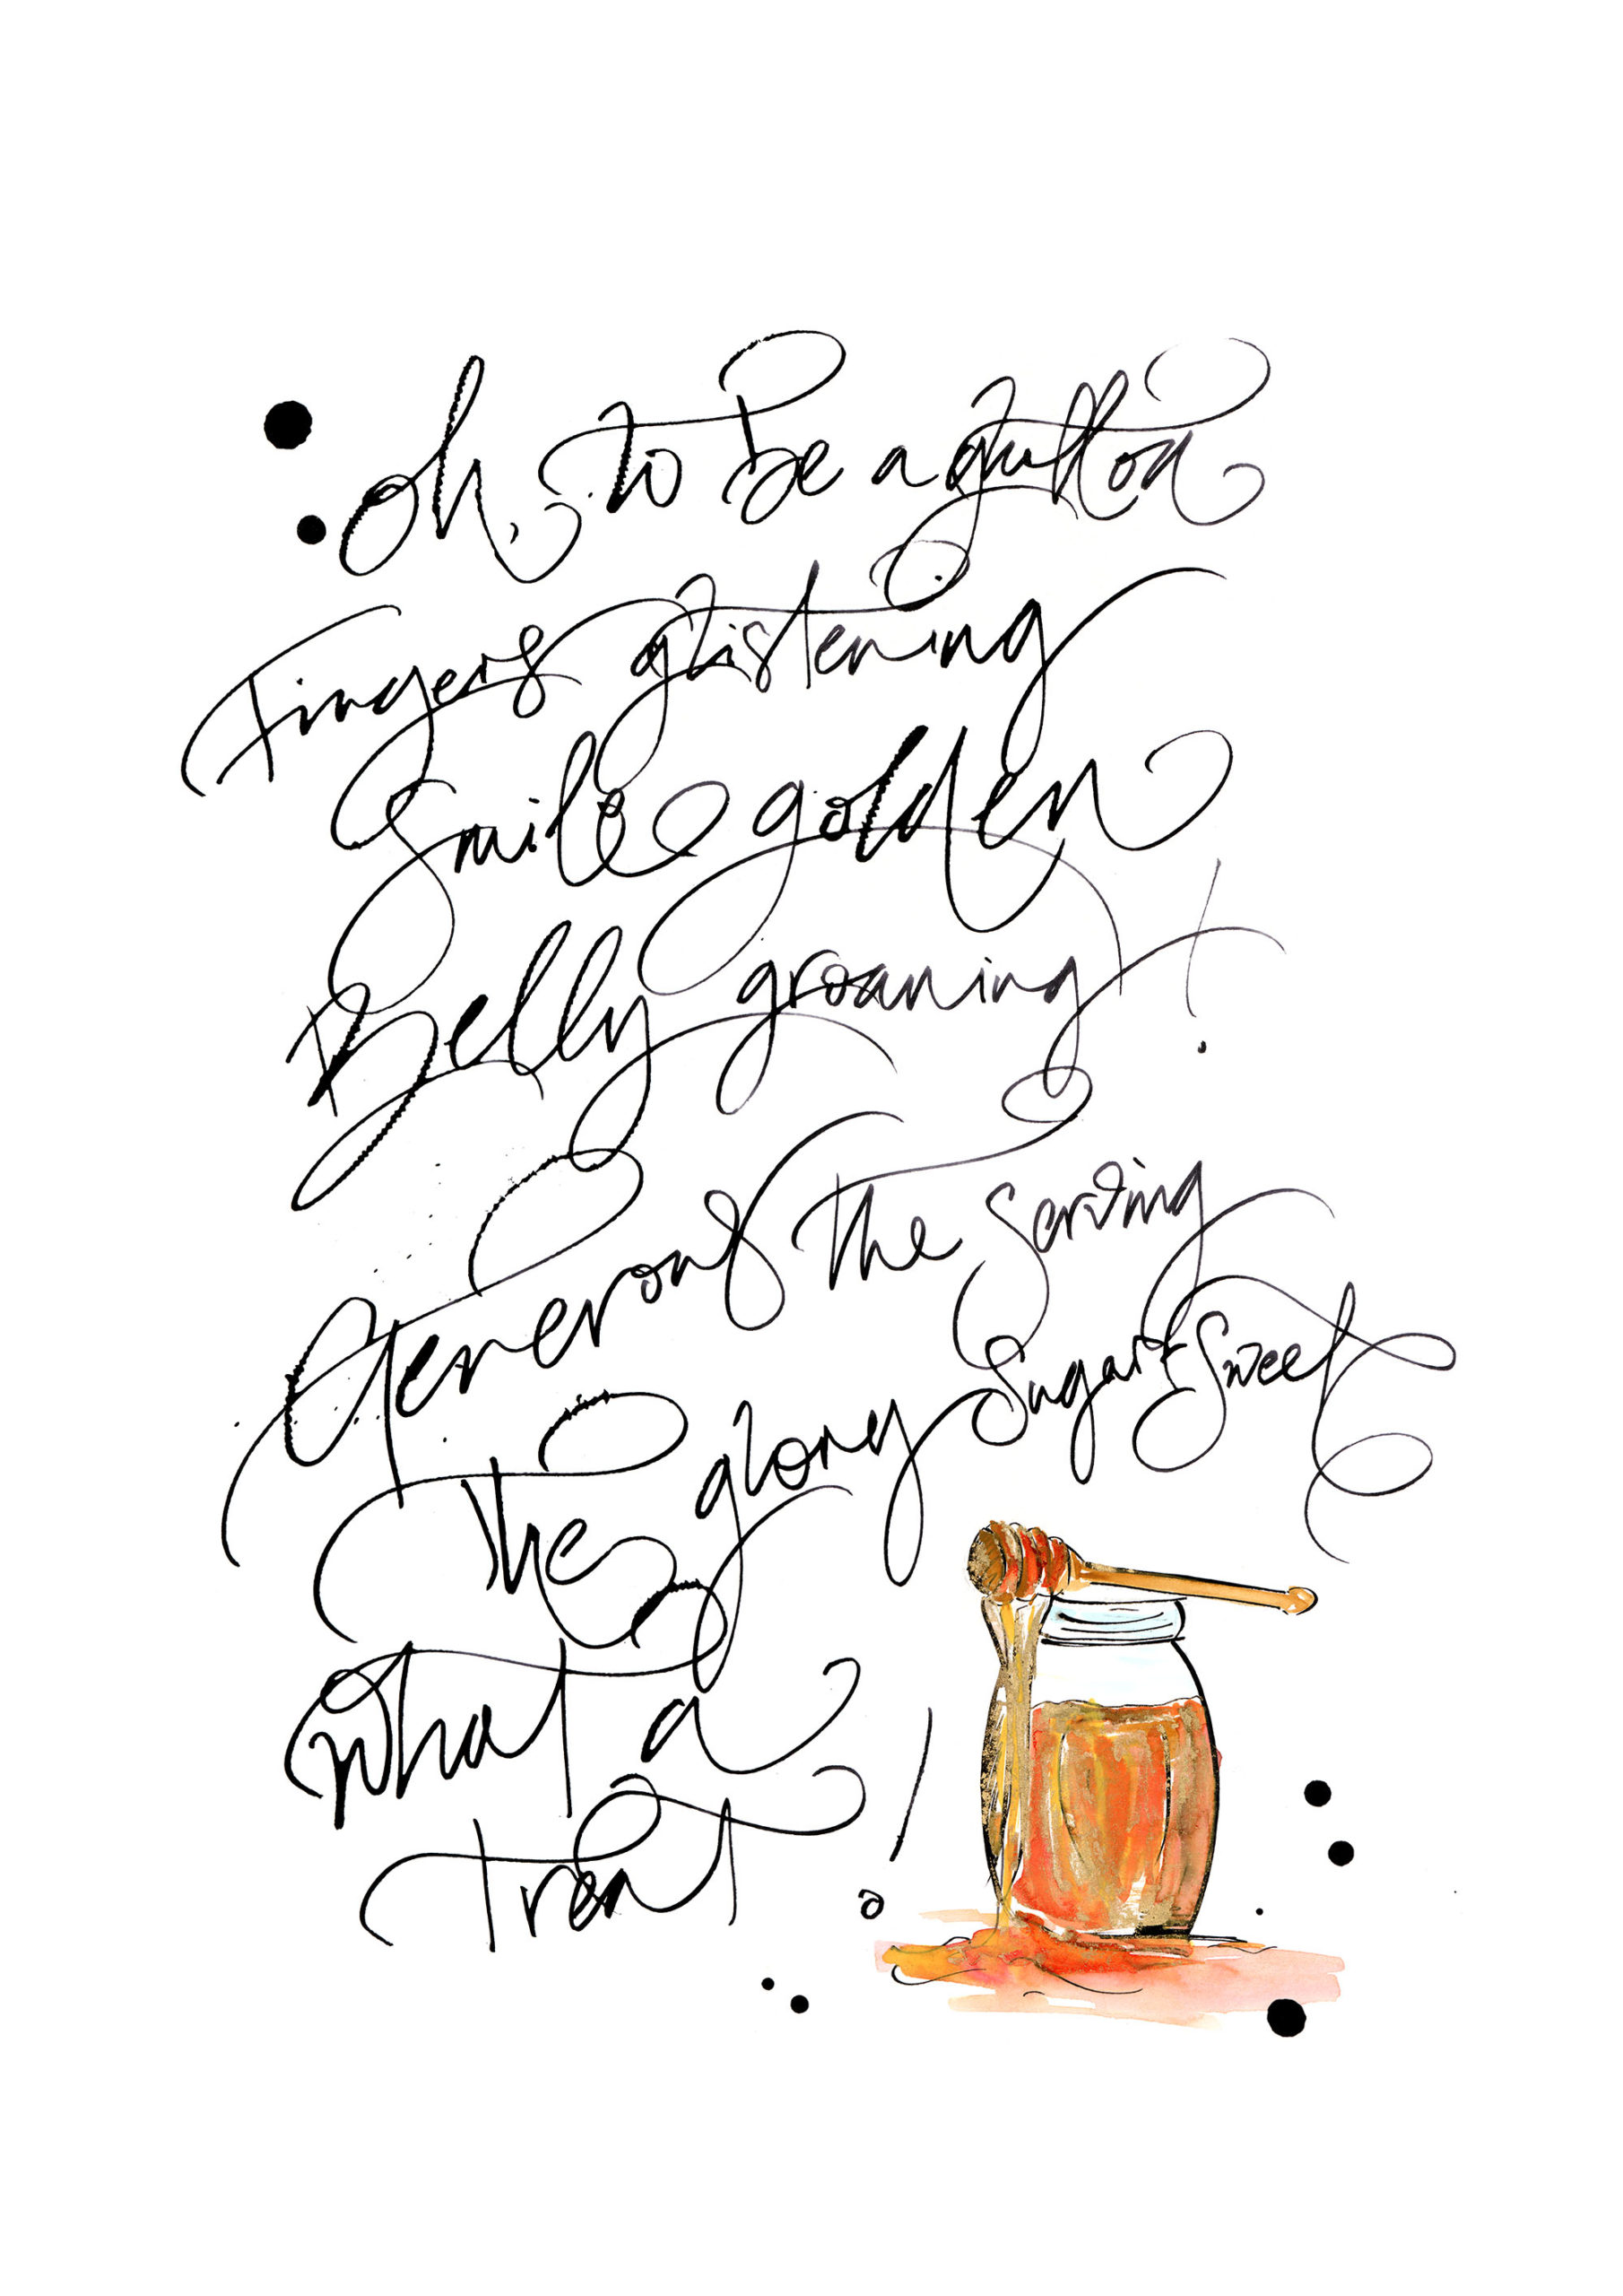 Oh, to be a glutton
Fingers glistening
Smile golden
Belly groaning!
Generous the serving
The glory sugar sweet
What a
treat!